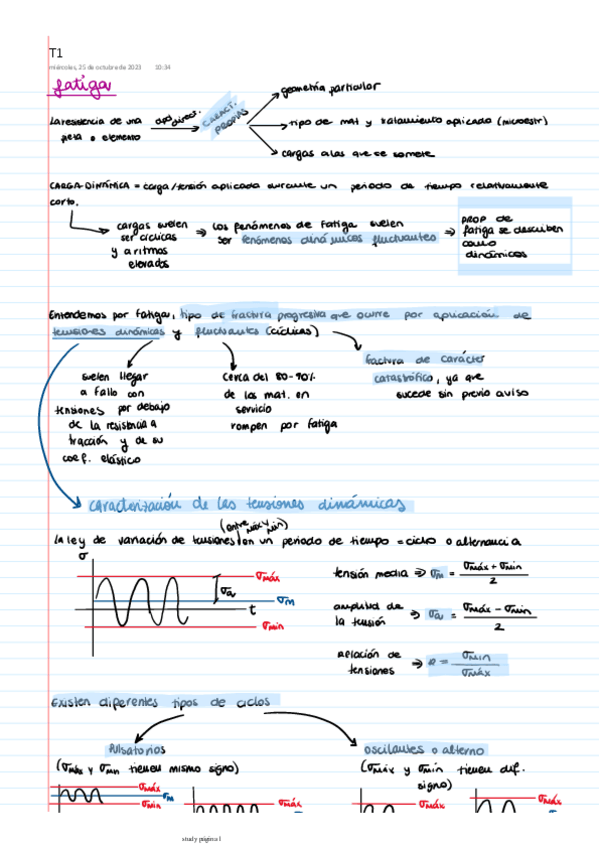 T1
miércoles, 25 de octubre de 2023 10:34
fatiga
geometría particular
La resistencia de una dpd direct. CARACT. PROPIAS tipo de mat y tratamiento aplicado (microestr)
pieza o elemento
cargas a las que se somete
CARGA DINÁMICA = carga/tensión aplicada durante un periodo de tiempo relativamente
corto.
cargas suelen
ser cíclicas
y a ritmos
elevados
los fenómenos de fatiga suelen
ser fenómenos dinámicos fluctuantes
PROP DE
fatiga se describen
como
dinámicos
Entendemos por fatiga, tipo de fractura progresiva que ocurre por aplicación de
tensiones dinámicas y fluctuantes (cíclicas)
suelen llegar
a fallo con
tensiones por debajo
de la resistencia a
tracción y de su
coef. elástico
cerca del 80-90%
de los mat. en
servicio
rompen por fatiga
factura de carácter
catastrófico, ya que
sucede sin previo aviso
caracterización de las tensiones dinámicas
(entre máx y min)
la ley de variación de tensiones en un periodo de tiempo = ciclo o alternancia
σ
σmáx
σa
σm
t
σmin
tensión media ⇒ σm = σmáx + σmin / 2
amplitud de
la tensión ⇒ σa = σmáx - σmin / 2
relación de
tensiones ⇒ R = σmin / σmáx
Existen diferentes tipos de ciclos
Pulsatorios
(σmáx y σmin tienen mismo signo)
oscilantes o alterno
(σmáx y σmin tienen dif.
signo)
σmáx
σm
σmin
σmáx
σmáx
σmáx
study página 1